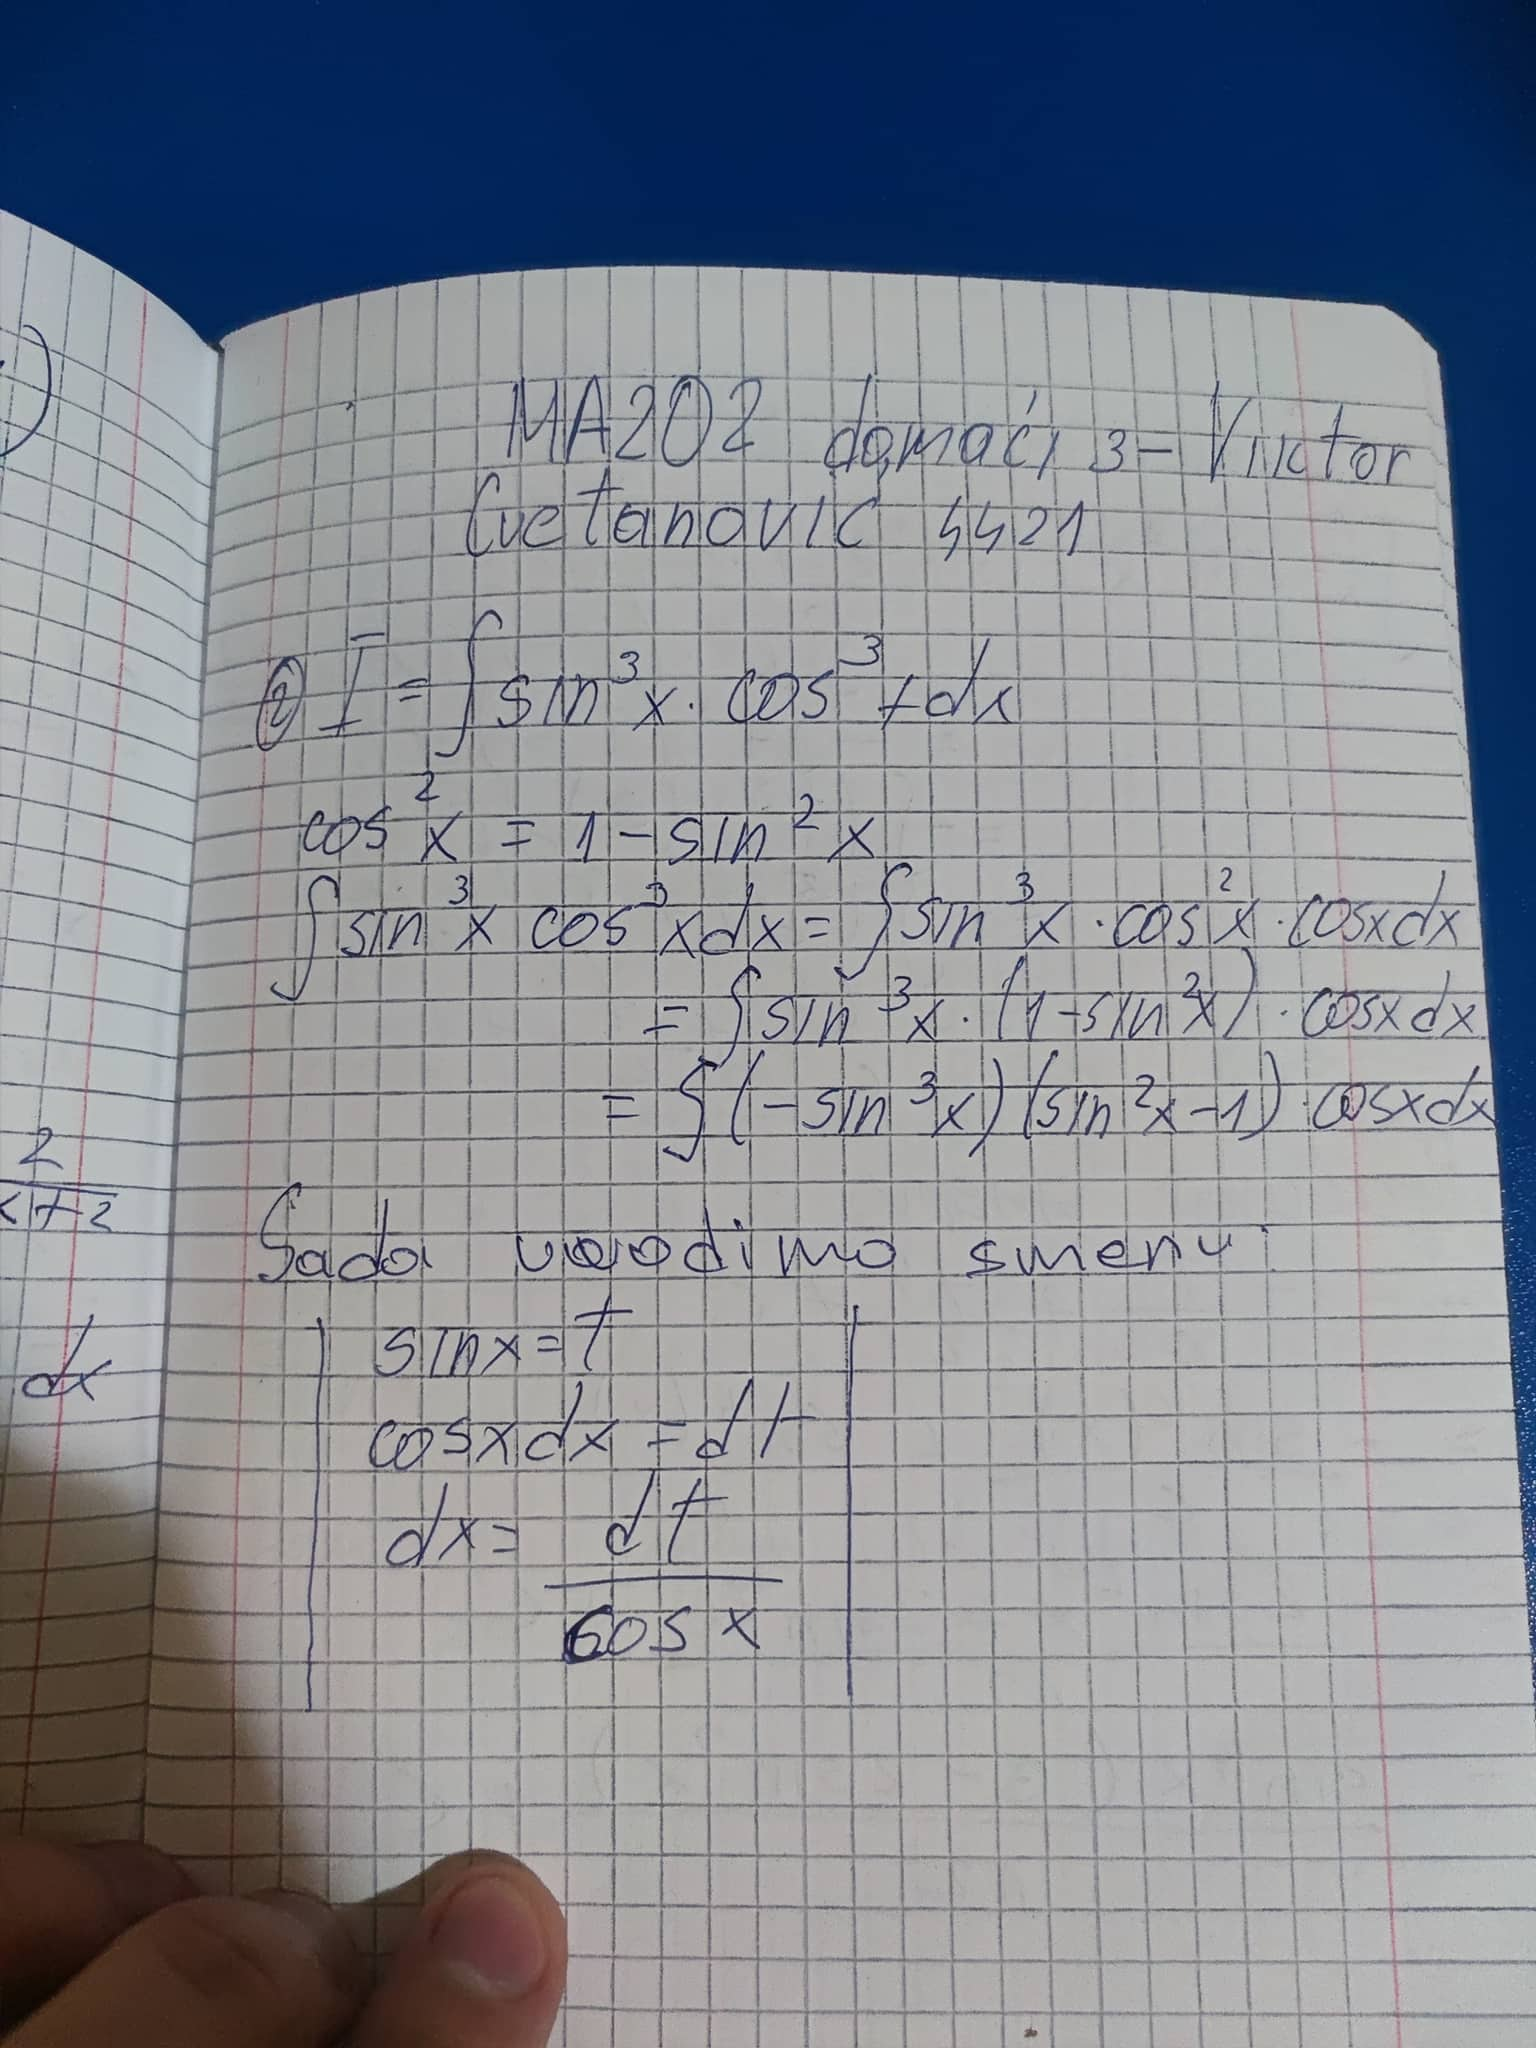 MA202 domaći 3 - Viktor
Cvetanović 4421
② I = ∫ sin³x · cos³x dx
cos²x = 1 - sin²x
∫ sin³x cos³x dx = ∫ sin³x · cos²x · cosx dx
= ∫ sin³x · (1 - sin²x) · cosx dx
= ∫ (-sin³x) (sin²x - 1) · cosx dx
Sada uvodimo smenu:
sinx = t
cosx dx = dt
dx = dt
cos x
2
x+2
dx